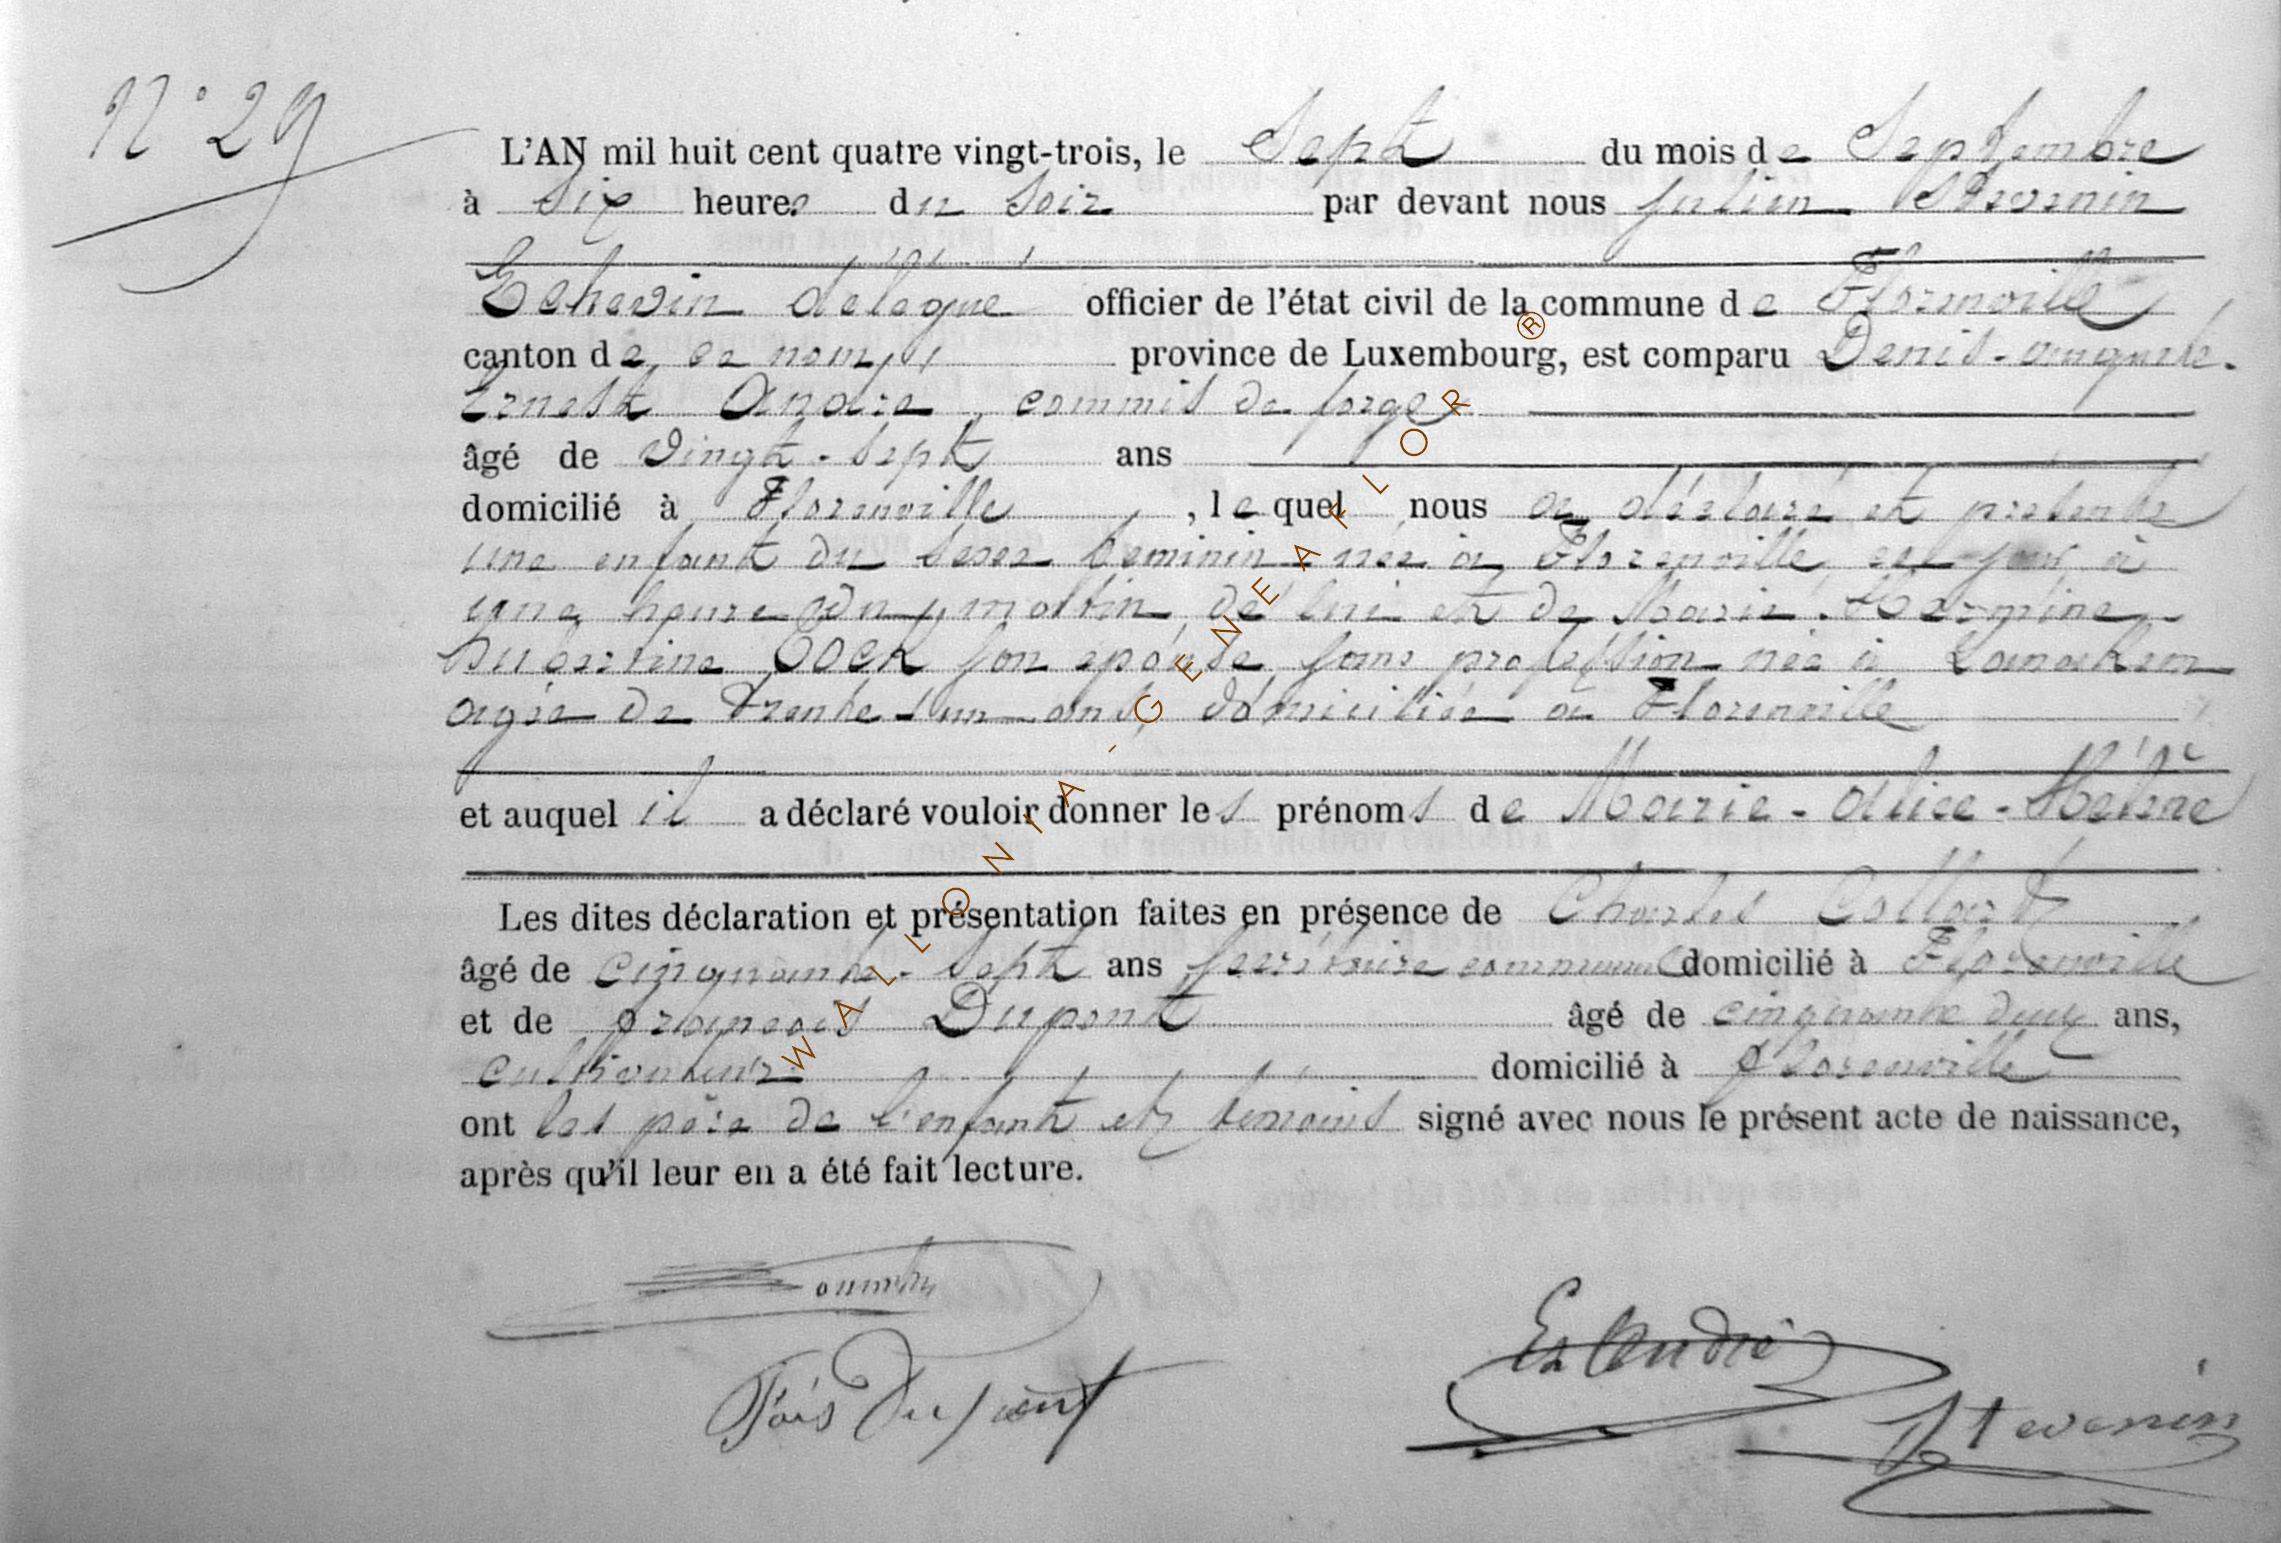 N° 29
L'AN mil huit cent quatre vingt-trois, le Sept du mois de Septembre
à Six heures du Soir par devant nous Julien Stevenin
Echevin délégué officier de l'état civil de la commune de Florenville
canton de ce nom, province de Luxembourg, est comparu Denis-auguste-
Ernest André, commis de forge
âgé de Vingt-Sept ans
domicilié à Florenville, lequel nous a déclaré et présenté
une enfant du sexe feminin née à Florenville, ce jour à
une heure du matin, de lui et de Marie-Hermine-
Hubertine Cock son épouse sans profession née à Lanaeken
agée de Trente-un ans, domiciliée à Florenville
et auquel il a déclaré vouloir donner les prénoms de Marie-alice-Hélène
Les dites déclaration et présentation faites en présence de Charles Collard
âgé de cinquante-Sept ans Secrétaire communal domicilié à Florenville
et de françois Dupont âgé de cinquante deux ans,
cultivateur domicilié à florenville
ont les père de l'enfant et témoins signé avec nous le présent acte de naissance,
après qu'il leur en a été fait lecture.
Er André
Fois Dupont
Stevenin
WALLONIA-GENEAFLOR®